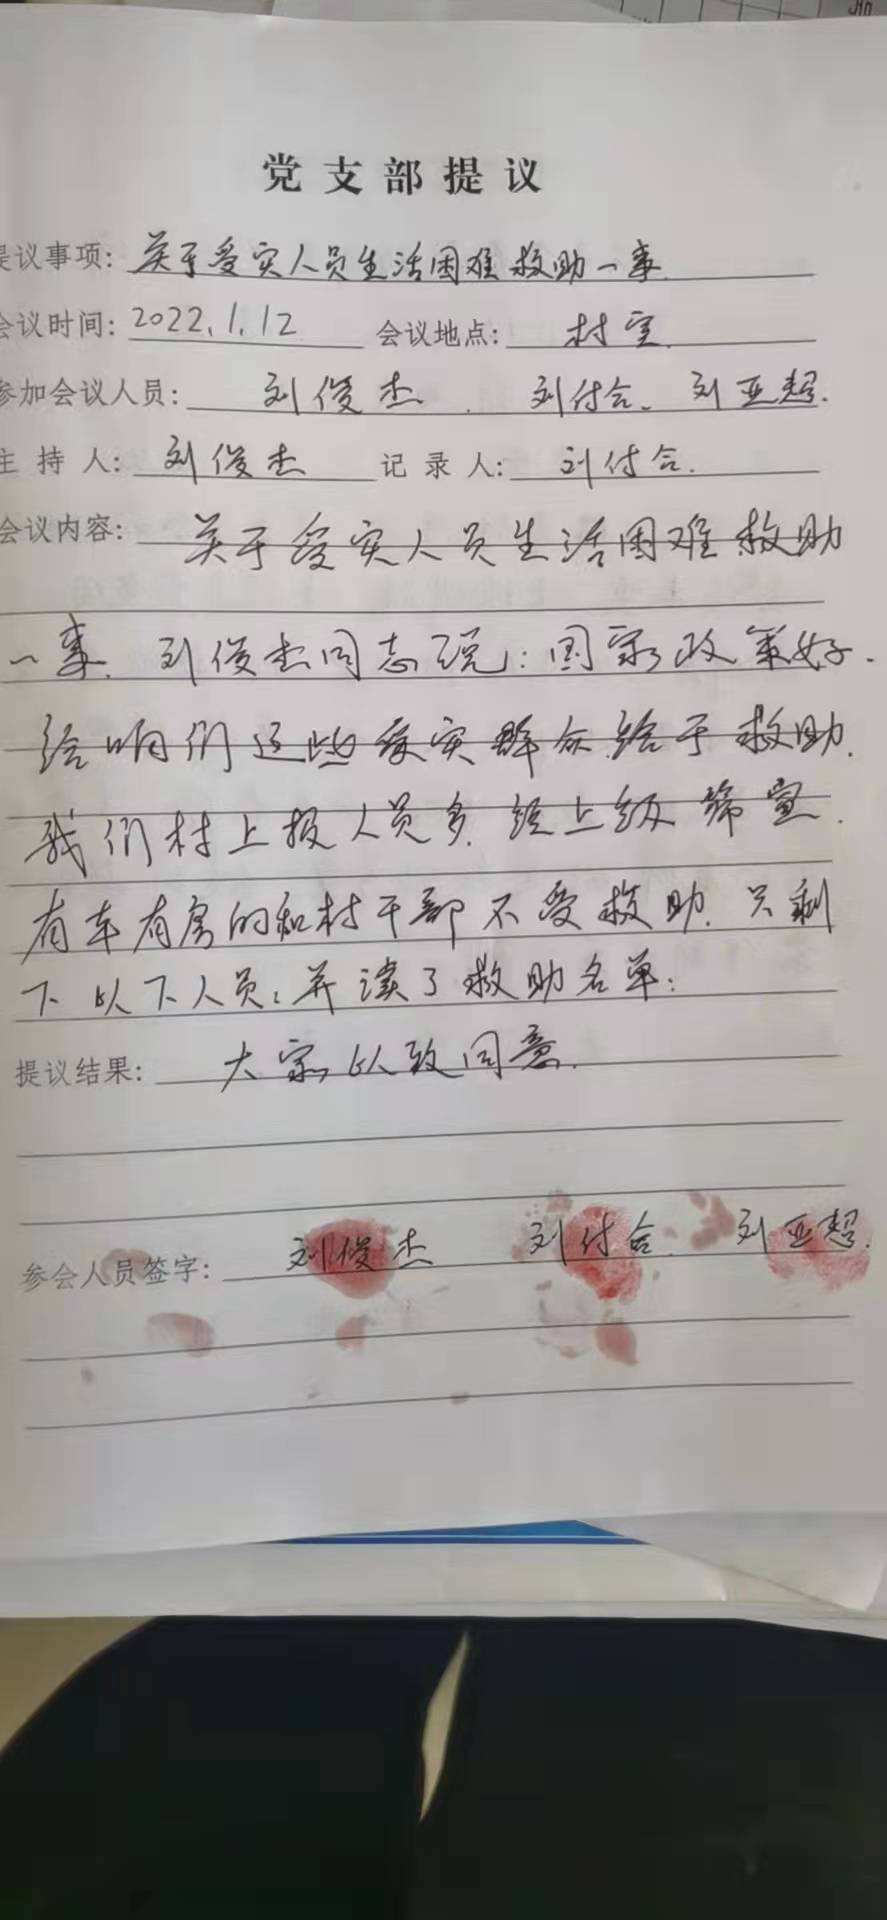 党支部提议
提议事项: 关于受灾人员生活困难救助一事.
会议时间: 2022.1.12 会议地点: 村室.
参加会议人员: 刘俊杰. 刘付合. 刘亚超.
主持人: 刘俊杰 记录人: 刘付合.
会议内容: 关于受灾人员生活困难救助
一事. 刘俊杰同志说: 国家政策好.
给咱们这些受灾群众给于救助.
我们村上报人员多. 经上级筛查.
有车有房的和村干部不受救助. 只剩
下以下人员; 并读了救助名单:
提议结果: 大家以致同意.
参会人员签字: 刘俊杰 刘付合. 刘亚超.